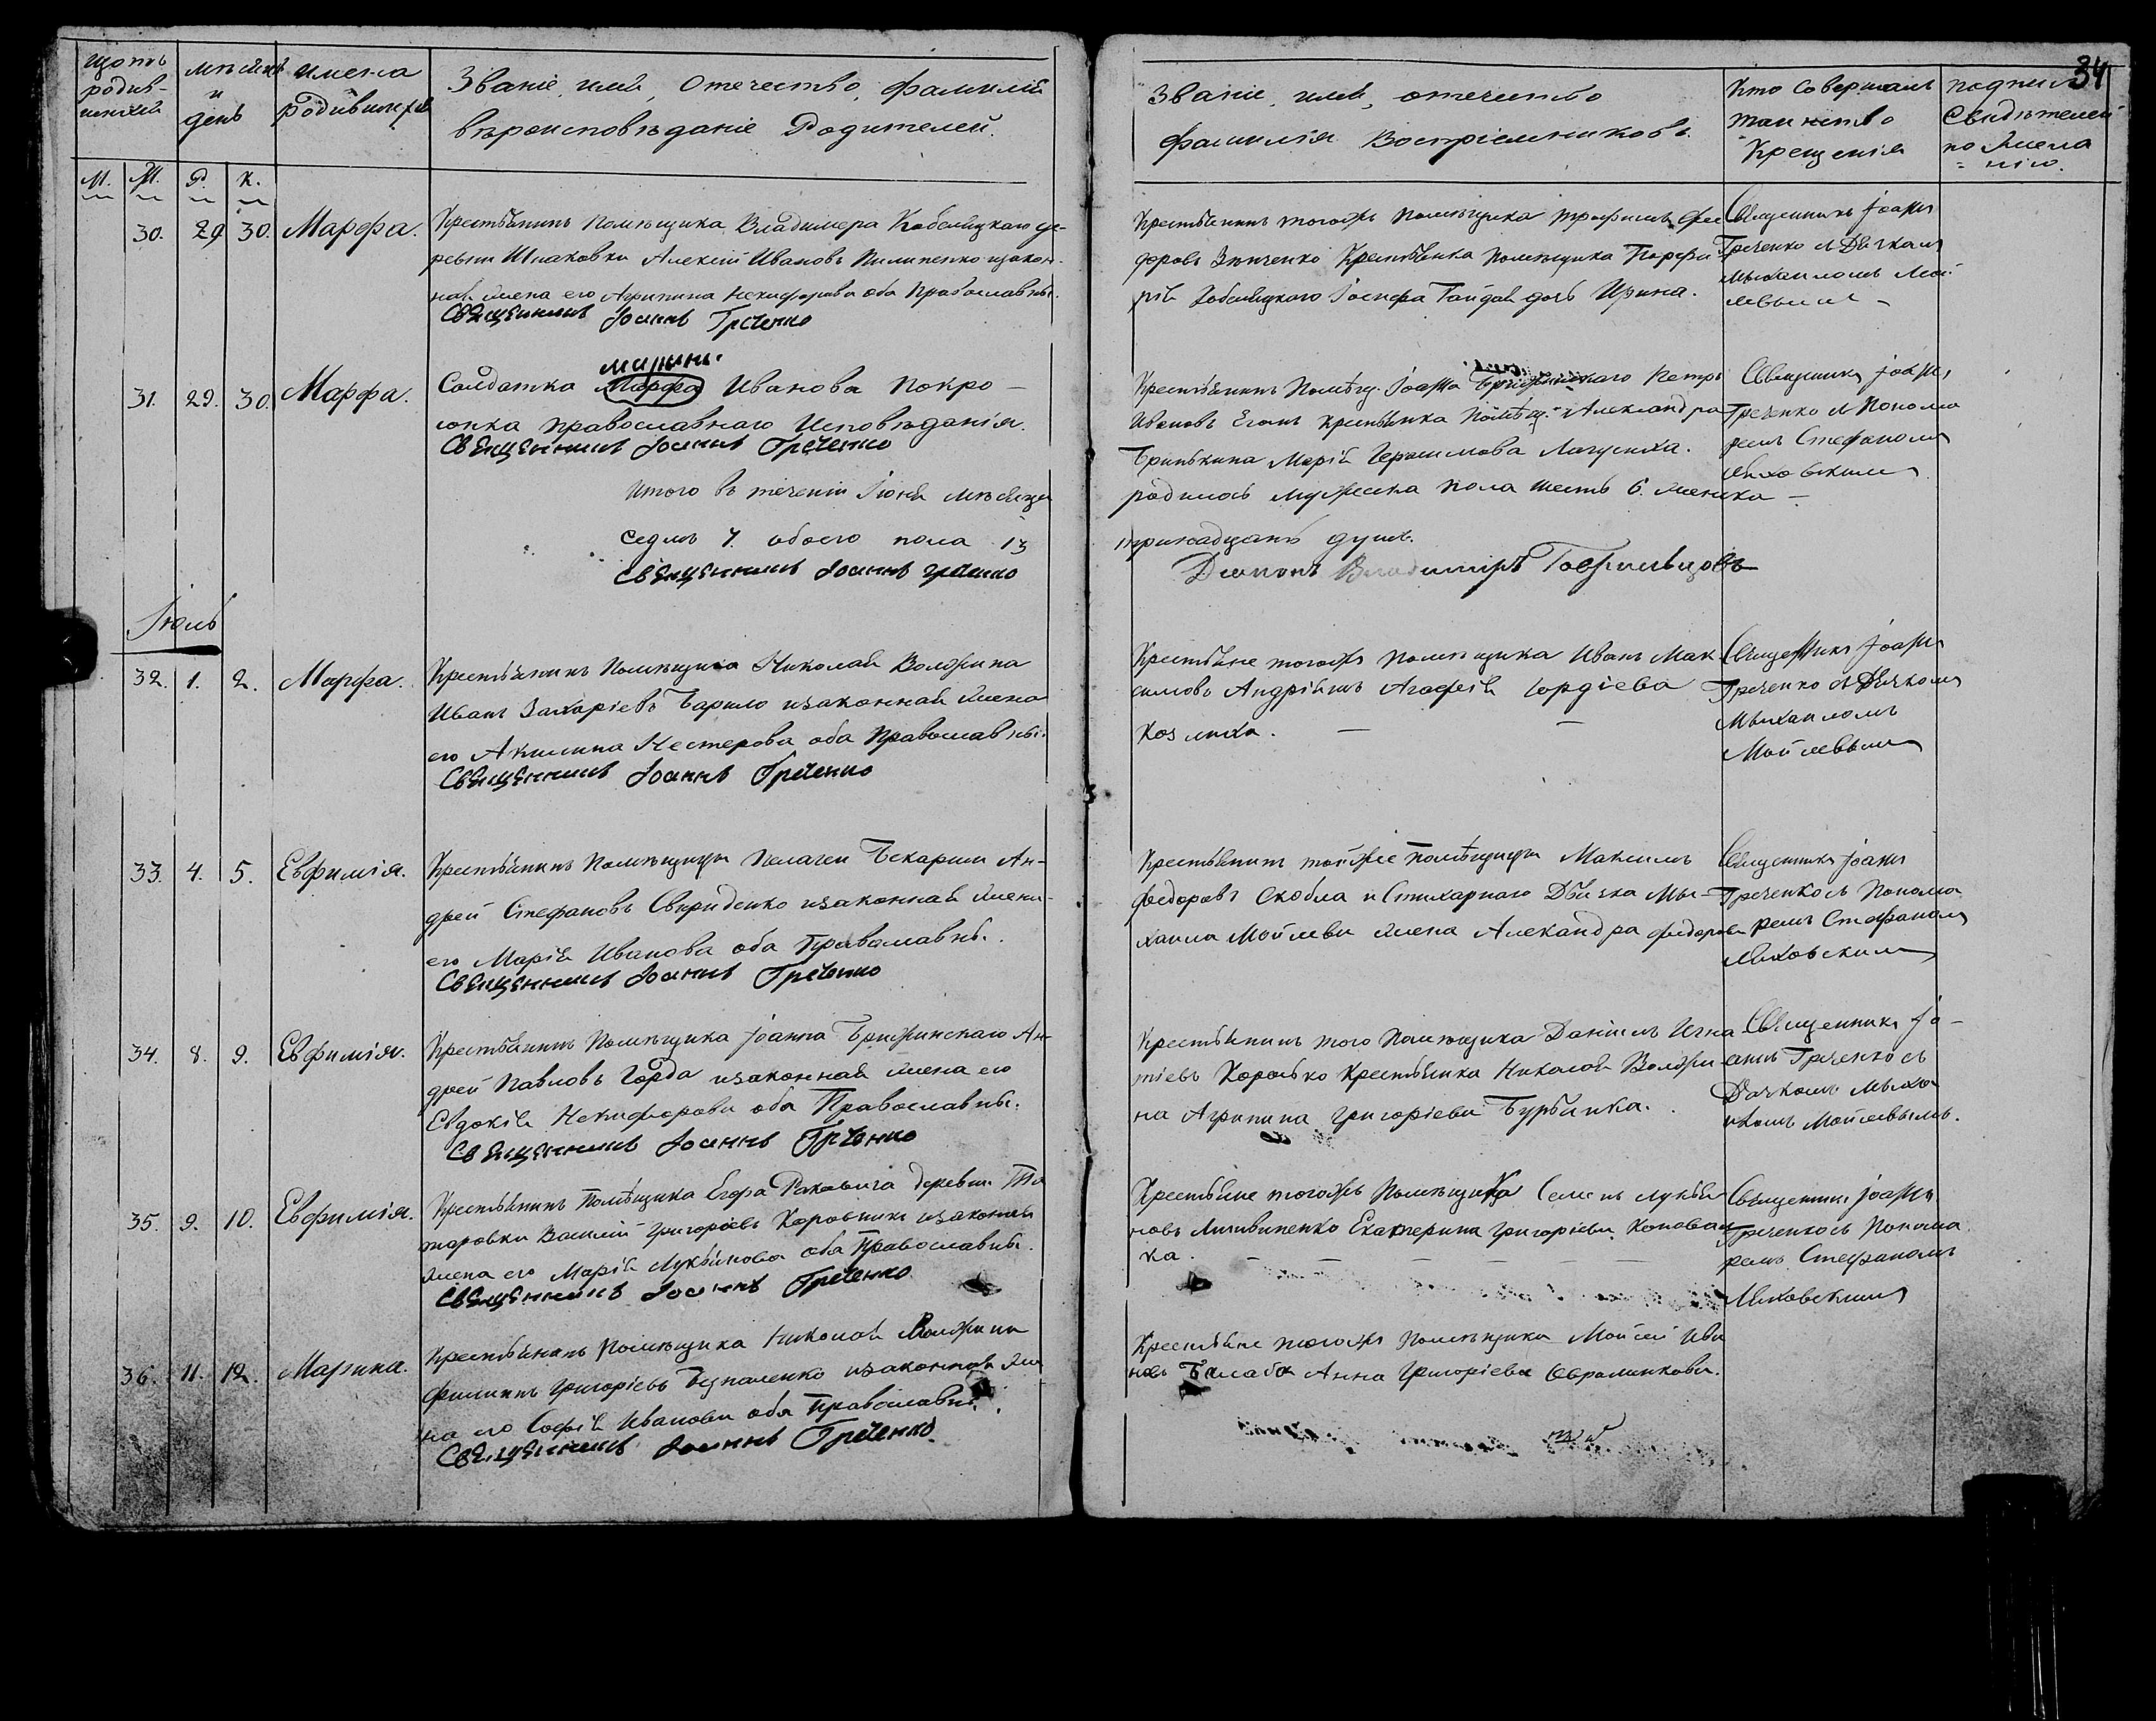 34
Щотъ родив-шихся
мѣсяцъ и день
имена родившихся
Званіе, имя, Отечество, фамилія
вѣроисповѣданіе Родителей.
Званіе, имя, отечество
фамилія Воспріемниковъ.
Кто Совершалъ
таинство
Крещенія
подпись
Свидѣтелей
по Жела
= нію.
М. Ж. Р. К.
30. 29 30. Марфа.
Крестьянинъ помѣщика Владимера Кобелицкаго де-
ревни Шпаковки Алексій Ивановъ Пилипенко изакон-
ная жена его Агрипина Никифорова оба Православны.
Священникъ Іоаннъ Греченко
Крестьянинъ тогожъ помѣщика Трофимъ Фео
доровъ Зѣнченко Крестьянка Помѣщика Порфи
рія Кобелицкаго Іосифа Гайдая дочь Ирина.
Священникъ Іоаннъ
Греченко съ Дячкомъ
Михаиломъ Мой-
левымъ
31. 29. 30. Марфа.
Марина.
Солдатка Марфа Иванова Покро-
юпка православнаго Исповѣданія.
Священникъ Іоаннъ Греченко
Крестьянинъ Помѣщ. Іоанна Бриженскаго Петръ
Ивановъ Крестьянка Помѣщ. Александра
Принькина Марія Герасимова
Священникъ Іоаннъ
Греченко съ Понома
ремъ Стефаномъ
Ляховскимъ
Итого въ теченіи Іюня мѣсяца
родилось мужеска пола шесть 6. женска —
седмъ 7. обоего пола 13
тринадцать душъ.
Священникъ Іоаннъ Греченко
Діаконъ Владиміръ
Іюль
32. 1. 2. Марфа.
Крестьянинъ Помѣщика Николая Воложина
Иванъ Захаріевъ Барило изаконная жена
его Акилина Нестерова оба Православны.
Священникъ Іоаннъ Греченко
Крестьяне тогожъ помѣщика Иванъ Мак-
симовъ Андріяшъ Агафія Гордіева
Козлиха.
Священникъ Іоаннъ
Греченко съ Дячкомъ
Михаиломъ
Мойлевымъ
33. 4. 5. Евфимія.
Крестьянинъ помѣщицы Пелагеи Бекаршы Ан-
дрей Стефановъ Свириденко изаконная жена
его Марія Иванова оба Православны.
Священникъ Іоаннъ Греченко
Крестьянинъ тойже помѣщицы Максимъ
Федоровъ Скобла и Стихарнаго Дьячка Ми-
хаила Мойлева жена Александра Федорова
Священникъ Іоаннъ
Греченко съ Понома
ремъ Стефаномъ
Ляховскимъ
34. 8. 9. Евфимія.
Крестьянинъ Помѣщика Іоанна Бриженскаго Ан-
дрей Павловъ Горда изаконная жена его
Євдокія Никифорова оба Православны.
Священникъ Іоаннъ Греченко
Крестьянинъ того Помѣщика Даніилъ Игна
тіевъ Коротко Крестьянка Николая Воложи
на Агрипина Григоріева Бурбачка.
Священникъ Іо-
аннъ Греченко съ
Дячкомъ Миха
иломъ Мойлевымъ.
35. 9. 10. Евфимія.
Крестьянинъ Помѣщика Егора Раковича деревни
Василій Григоріевъ Коровникъ изаконная
жена его Марія Лукьянова оба Православны.
Священникъ Іоаннъ Греченко
Крестьяне тогожъ Помѣщика Семенъ Лукья
новъ Литвиненко Екатерина Григоріева Коновал
ка.
Священникъ Іоаннъ
Греченко съ Понома
ремъ Стефаномъ
Ляховскимъ
36. 11. 12. Марина.
Крестьянинъ Помѣщика Николая Воложина
Филиппъ Григоріевъ Безпаленко изаконная же
на его Софія Иванова оба Православны.
Священникъ Іоаннъ Греченко
Крестьяне тогожъ Помѣщика Моисей Ива
новъ Баглаба Анна Григоріева